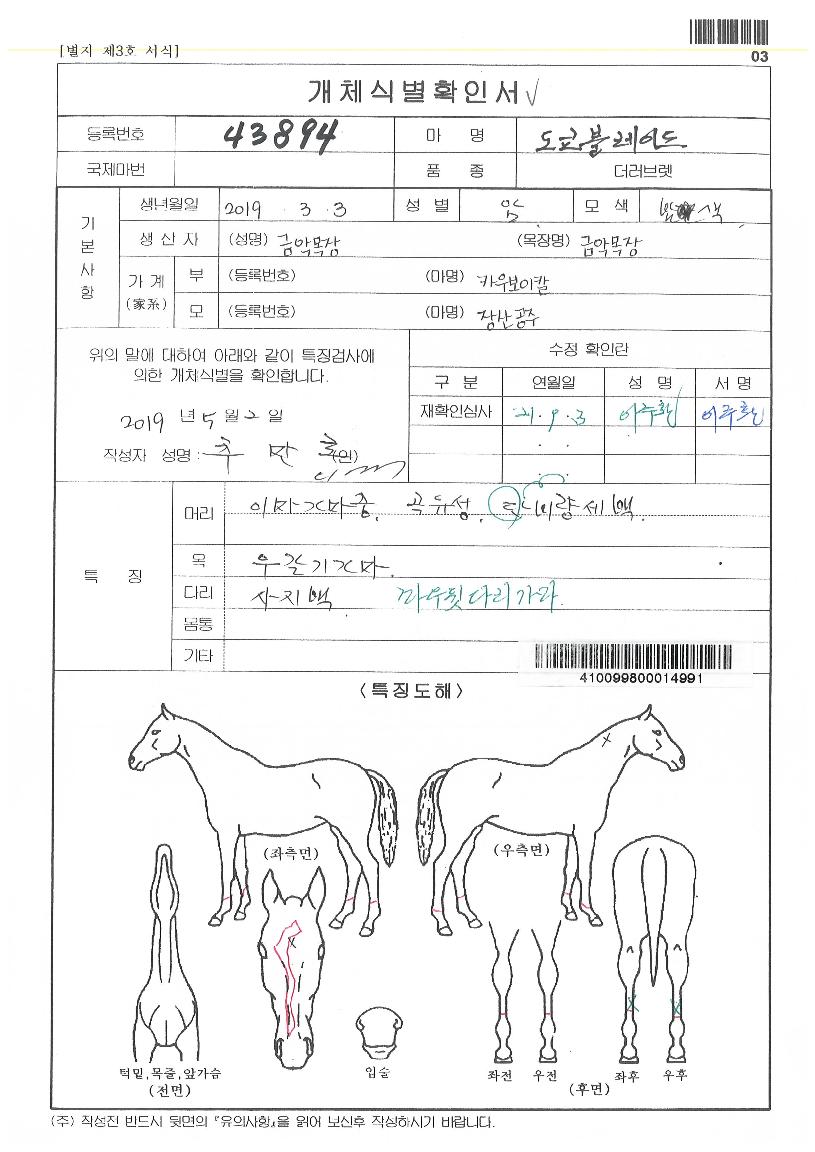 [별지 제3호 서식]
03
개체식별확인서 √
등록번호 43894 마 명 도쿄블레이드
국제마번 품 종 더러브렛
기본사항
생년월일 2019 . 3 . 3 성 별 암 모 색 밤색
생 산 자 (성명) 금악목장 (목장명) 금악목장
가 계 (家系)
부 (등록번호) (마명) 카우보이칼
모 (등록번호) (마명) 장산공주
위의 말에 대하여 아래와 같이 특징검사에
의한 개체식별을 확인합니다.
2019 년 5 월 2 일
작성자 성명 : 추 만 (인)
수정 확인란
구 분 연월일 성 명 서 명
재확인심사 21. 9. 3 이주환 이주환
특 징
머리 이마가마중, 곡유성, 비량세백.
목 우갈기가마.
다리 사지백 좌우뒷다리가마.
몸통
기타
410099800014991
<특징도해>
(좌측면) (우측면)
턱밑,목줄,앞가슴
(전면)
입술
좌전 우전 좌후 우후
(후면)
(주) 작성전 반드시 뒷면의 『유의사항』을 읽어 보신후 작성하시기 바랍니다.